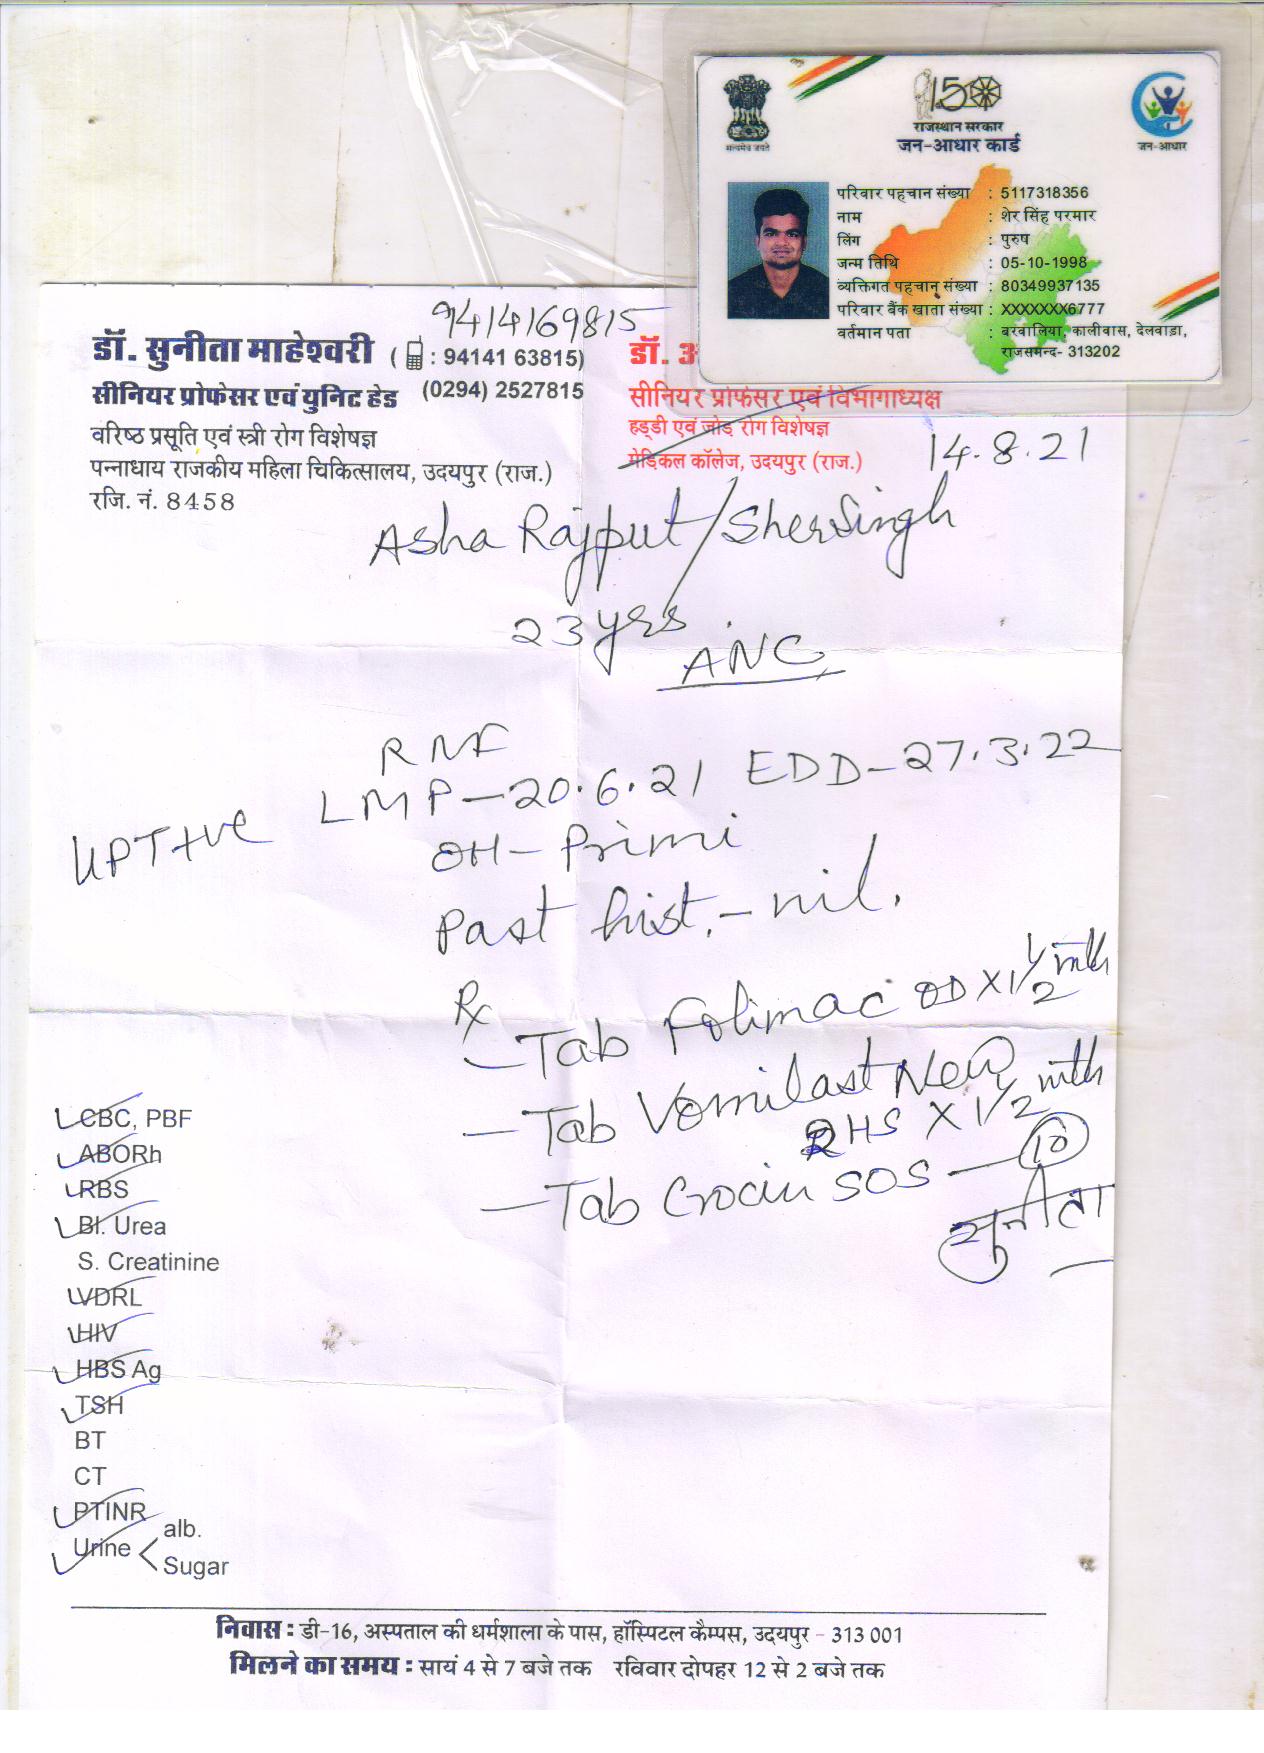 सत्यमेव जयते
150
राजस्थान सरकार
जन-आधार कार्ड
जन-आधार
परिवार पहचान संख्या : 5117318356
नाम : शेर सिंह परमार
लिंग : पुरुष
जन्म तिथि : 05-10-1998
व्यक्तिगत पहचान संख्या : 80349937135
परिवार बैंक खाता संख्या : XXXXXXX6777
वर्तमान पता : बरवालिया, कालीवास, देलवाड़ा,
राजसमन्द- 313202
9414169815
डॉ. सुनीता माहेश्वरी ( : 94141 63815)
सीनियर प्रोफेसर एवं युनिट हेड (0294) 2527815
वरिष्ठ प्रसूति एवं स्त्री रोग विशेषज्ञ
पन्नाधाय राजकीय महिला चिकित्सालय, उदयपुर (राज.)
रजि. नं. 8458
डॉ.
सीनियर प्रोफेसर एवं विभागाध्यक्ष
हड्डी एवं जोड़ रोग विशेषज्ञ
मेडिकल कॉलेज, उदयपुर (राज.)
14.8.21
Asha Rajput/Sher Singh
23 yrs
ANC
RMF
LMP-20.6.21 EDD-27.3.22
UPT+ve
OH-Primi
Past hist.-nil.
Rx
-Tab Folimac OD X 1 1/2 mth
-Tab Vomilast New
2HS X 1 1/2 mth
-Tab Crocin SOS - 10
सुनीता
CBC, PBF
ABORh
RBS
Bl. Urea
S. Creatinine
VDRL
HIV
HBS Ag
TSH
BT
CT
PTINR
Urine < alb.
Sugar
निवास : डी-16, अस्पताल की धर्मशाला के पास, हॉस्पिटल कैम्पस, उदयपुर - 313 001
मिलने का समय : सायं 4 से 7 बजे तक रविवार दोपहर 12 से 2 बजे तक